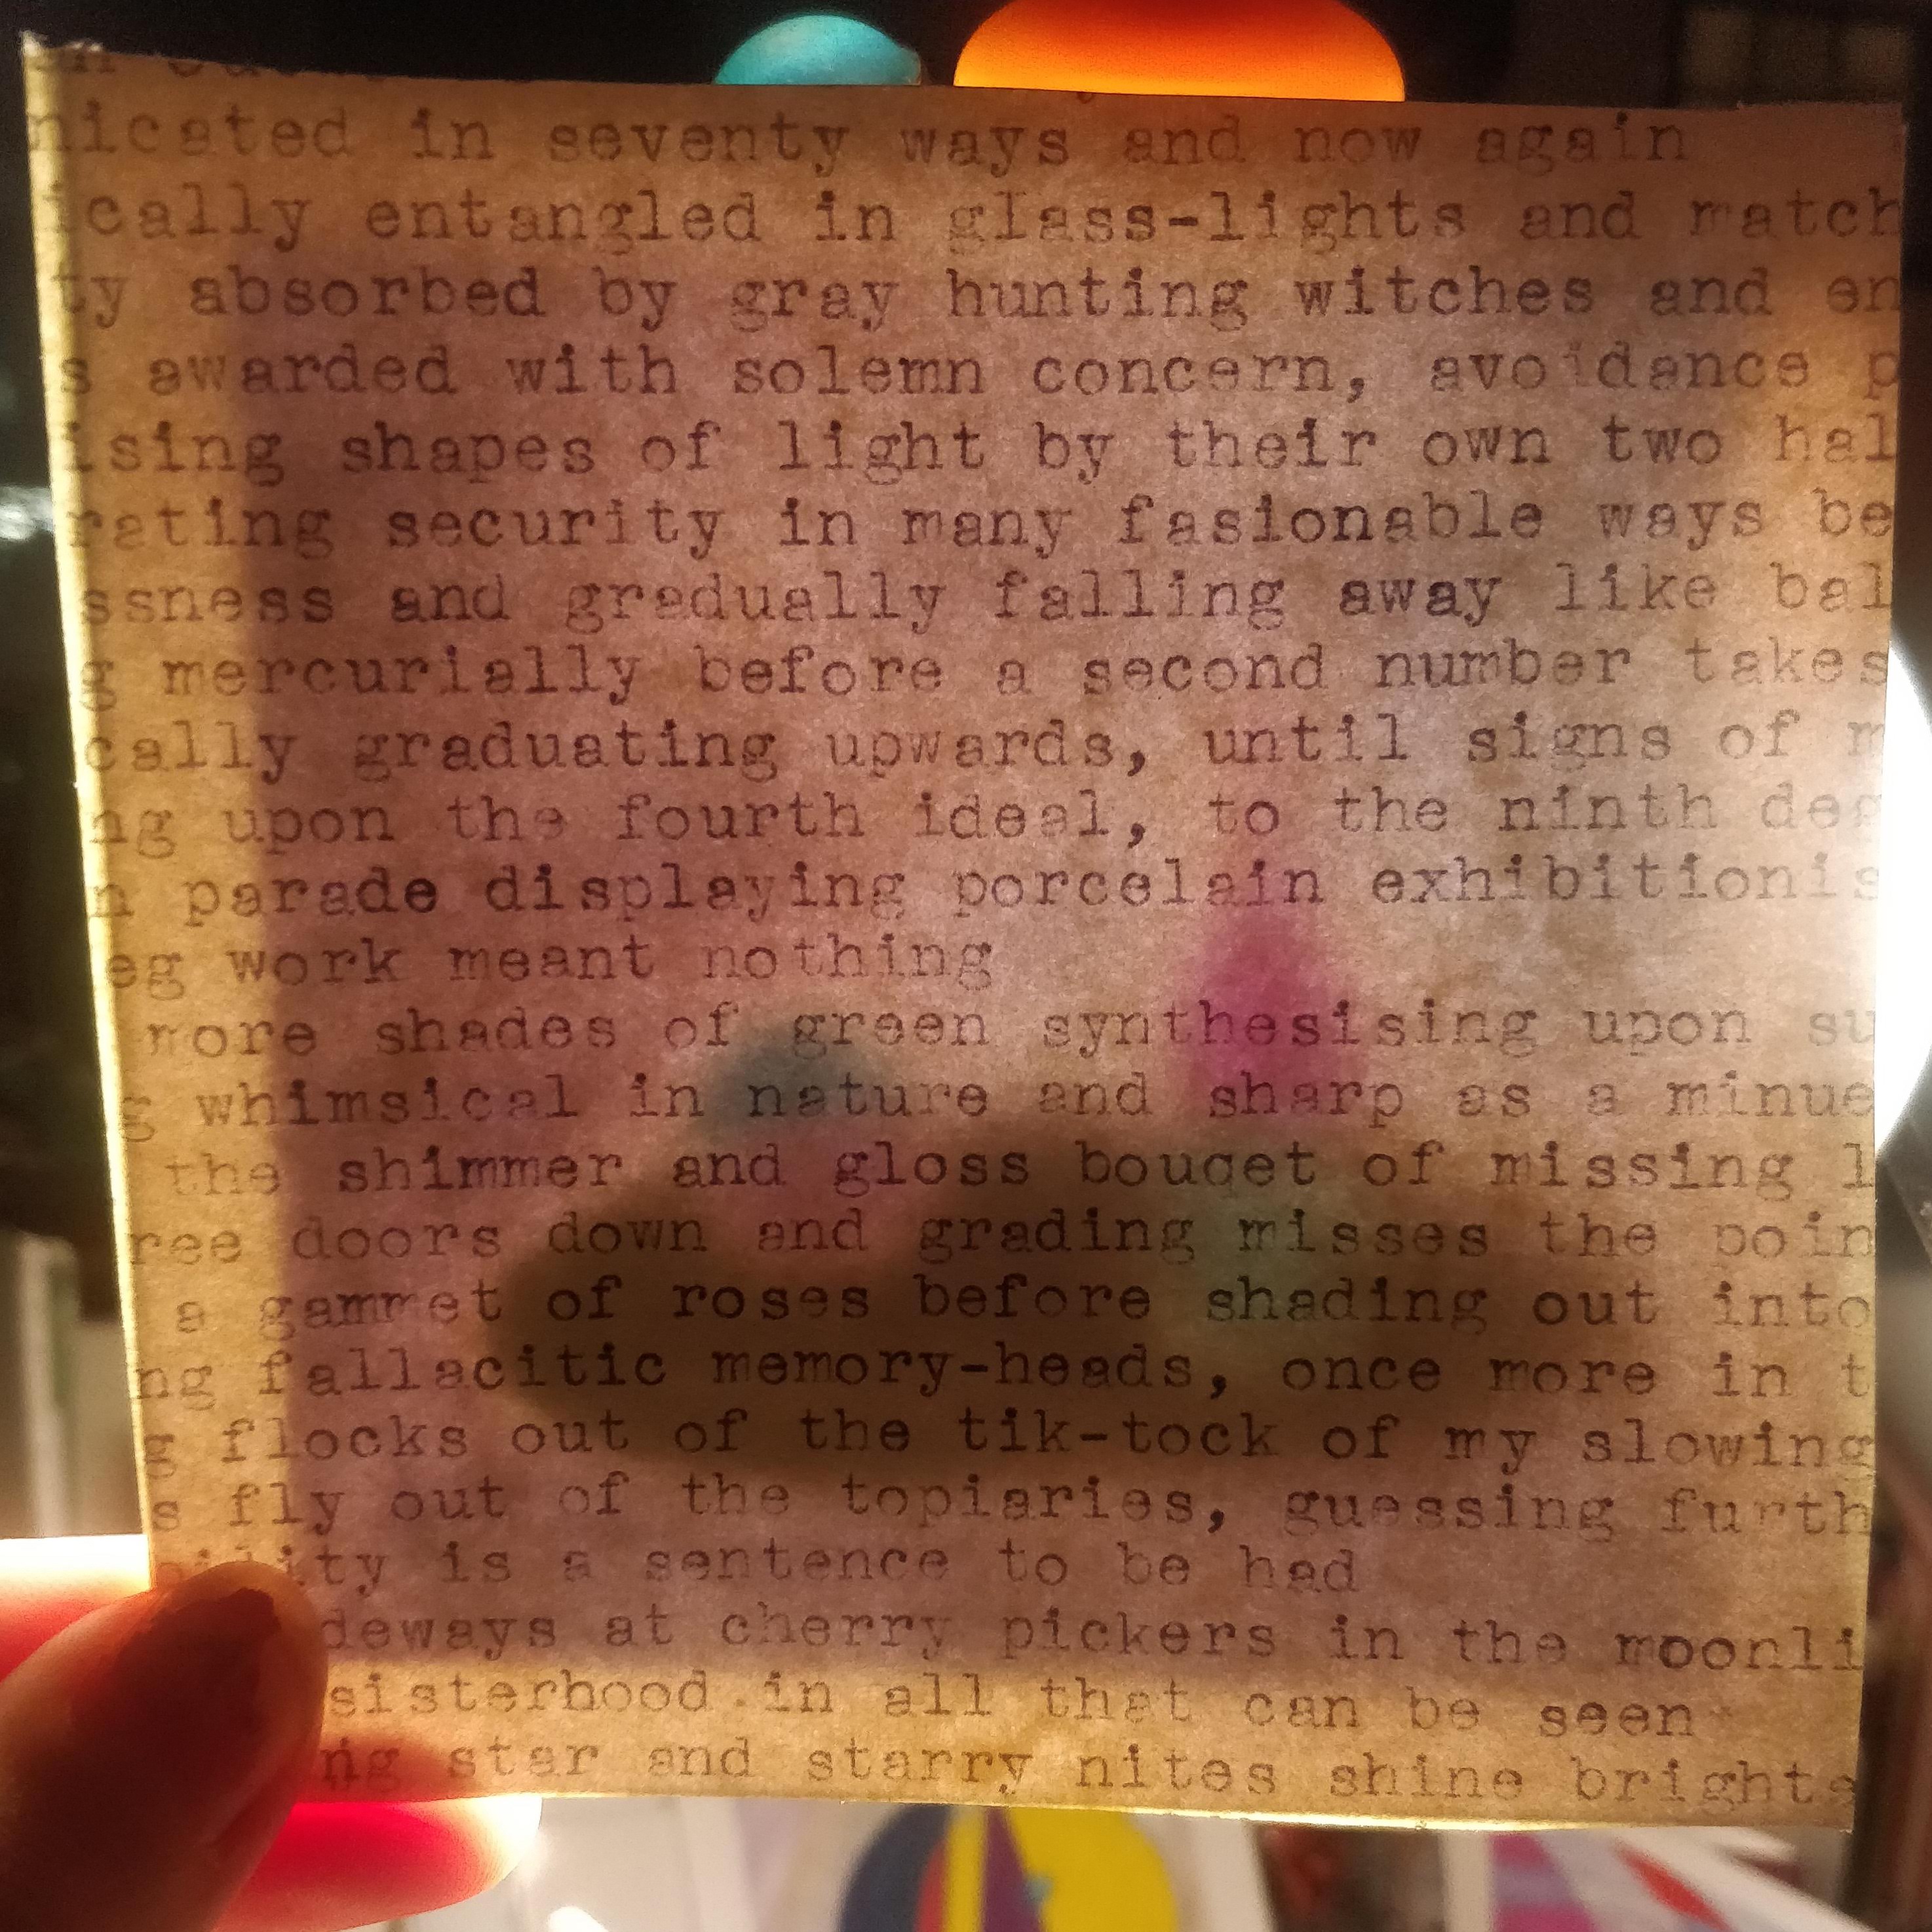 nicated in seventy ways and now again
ically entangled in glass-lights and match
ty absorbed by gray hunting witches and en
s awarded with solemn concern, avoidance p
ising shapes of light by their own two hal
rating security in many fasionable ways be
ssness and gradually falling away like bal
g mercurially before a second number takes
cally graduating upwards, until signs of m
ng upon the fourth ideal, to the ninth deg
n parade displaying porcelain exhibitionis
eg work meant nothing
more shades of green synthesising upon su
g whimsical in nature and sharp as a minue
the shimmer and gloss bouqet of missing l
ree doors down and grading misses the poin
a gammet of roses before shading out into
ng fallacitic memory-heads, once more in t
g flocks out of the tik-tock of my slowing
s fly out of the topiaries, guessing furth
ity is a sentence to be had
deways at cherry pickers in the moonli
sisterhood in all that can be seen
ng star and starry nites shine brights